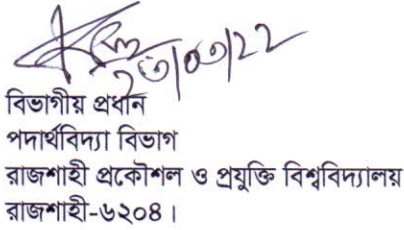 বিভাগীয় প্রধান
পদার্থবিদ্যা বিভাগ
রাজশাহী প্রকৌশল ও প্রযুক্তি বিশ্ববিদ্যালয়
রাজশাহী-৬২০৪।